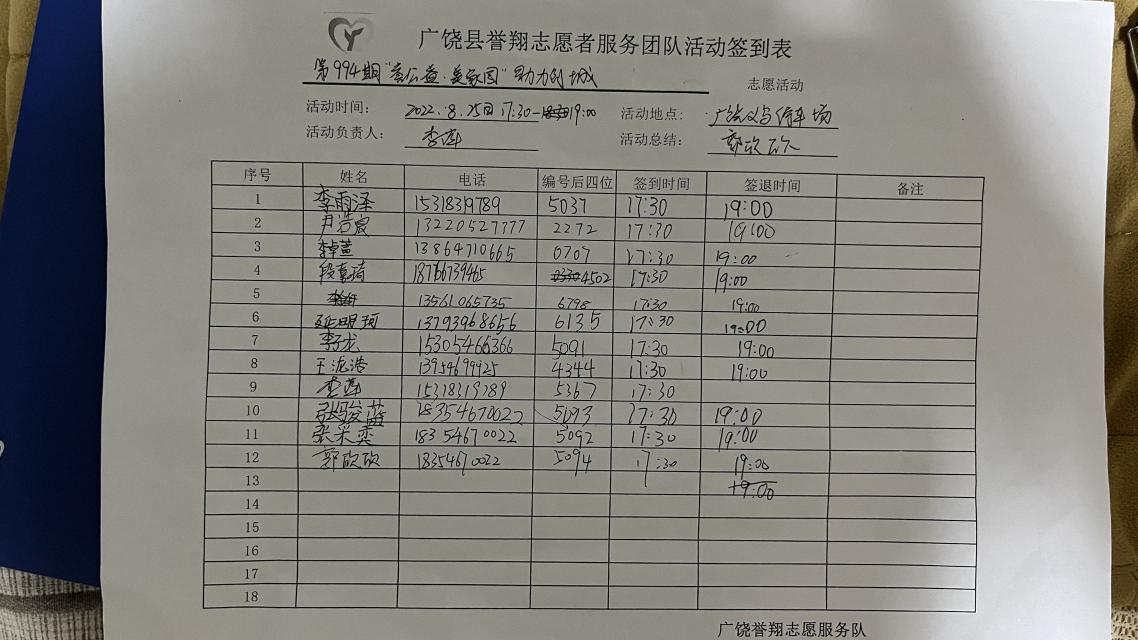 广饶县誉翔志愿者服务团队活动签到表
第994期"李公益·美家园"助力创城 志愿活动
活动时间： 2022.8.25日 17:30-19:00 活动地点：
活动负责人： 李萍 活动总结：
序号 姓名 电话 编号后四位 签到时间 签退时间 备注
1 李雨泽 15318319789 5037 17:30 19:00
2 尹浩宸 13220527777 2272 17:30 19:00
3 13864710665 0707 17:30 19:00
4 段嘉琦 18766739465 4502 17:30 19:00
5 13561065735 6798 17:30 19:00
6 13793968656 6135 17:30 19:00
7 李子龙 15305466366 5091 17:30 19:00
8 王泷浩 13954699925 4344 17:30 19:00
9 李萍 15318319789 5367 17:30
10 张骏蓝 18354670022 5093 17:30 19:00
11 采奕 18354670022 5092 17:30 19:00
12 郭欣欣 18354670022 5094 17:30 19:00
13 19:00
14
15
16
17
18
广饶誉翔志愿服务队